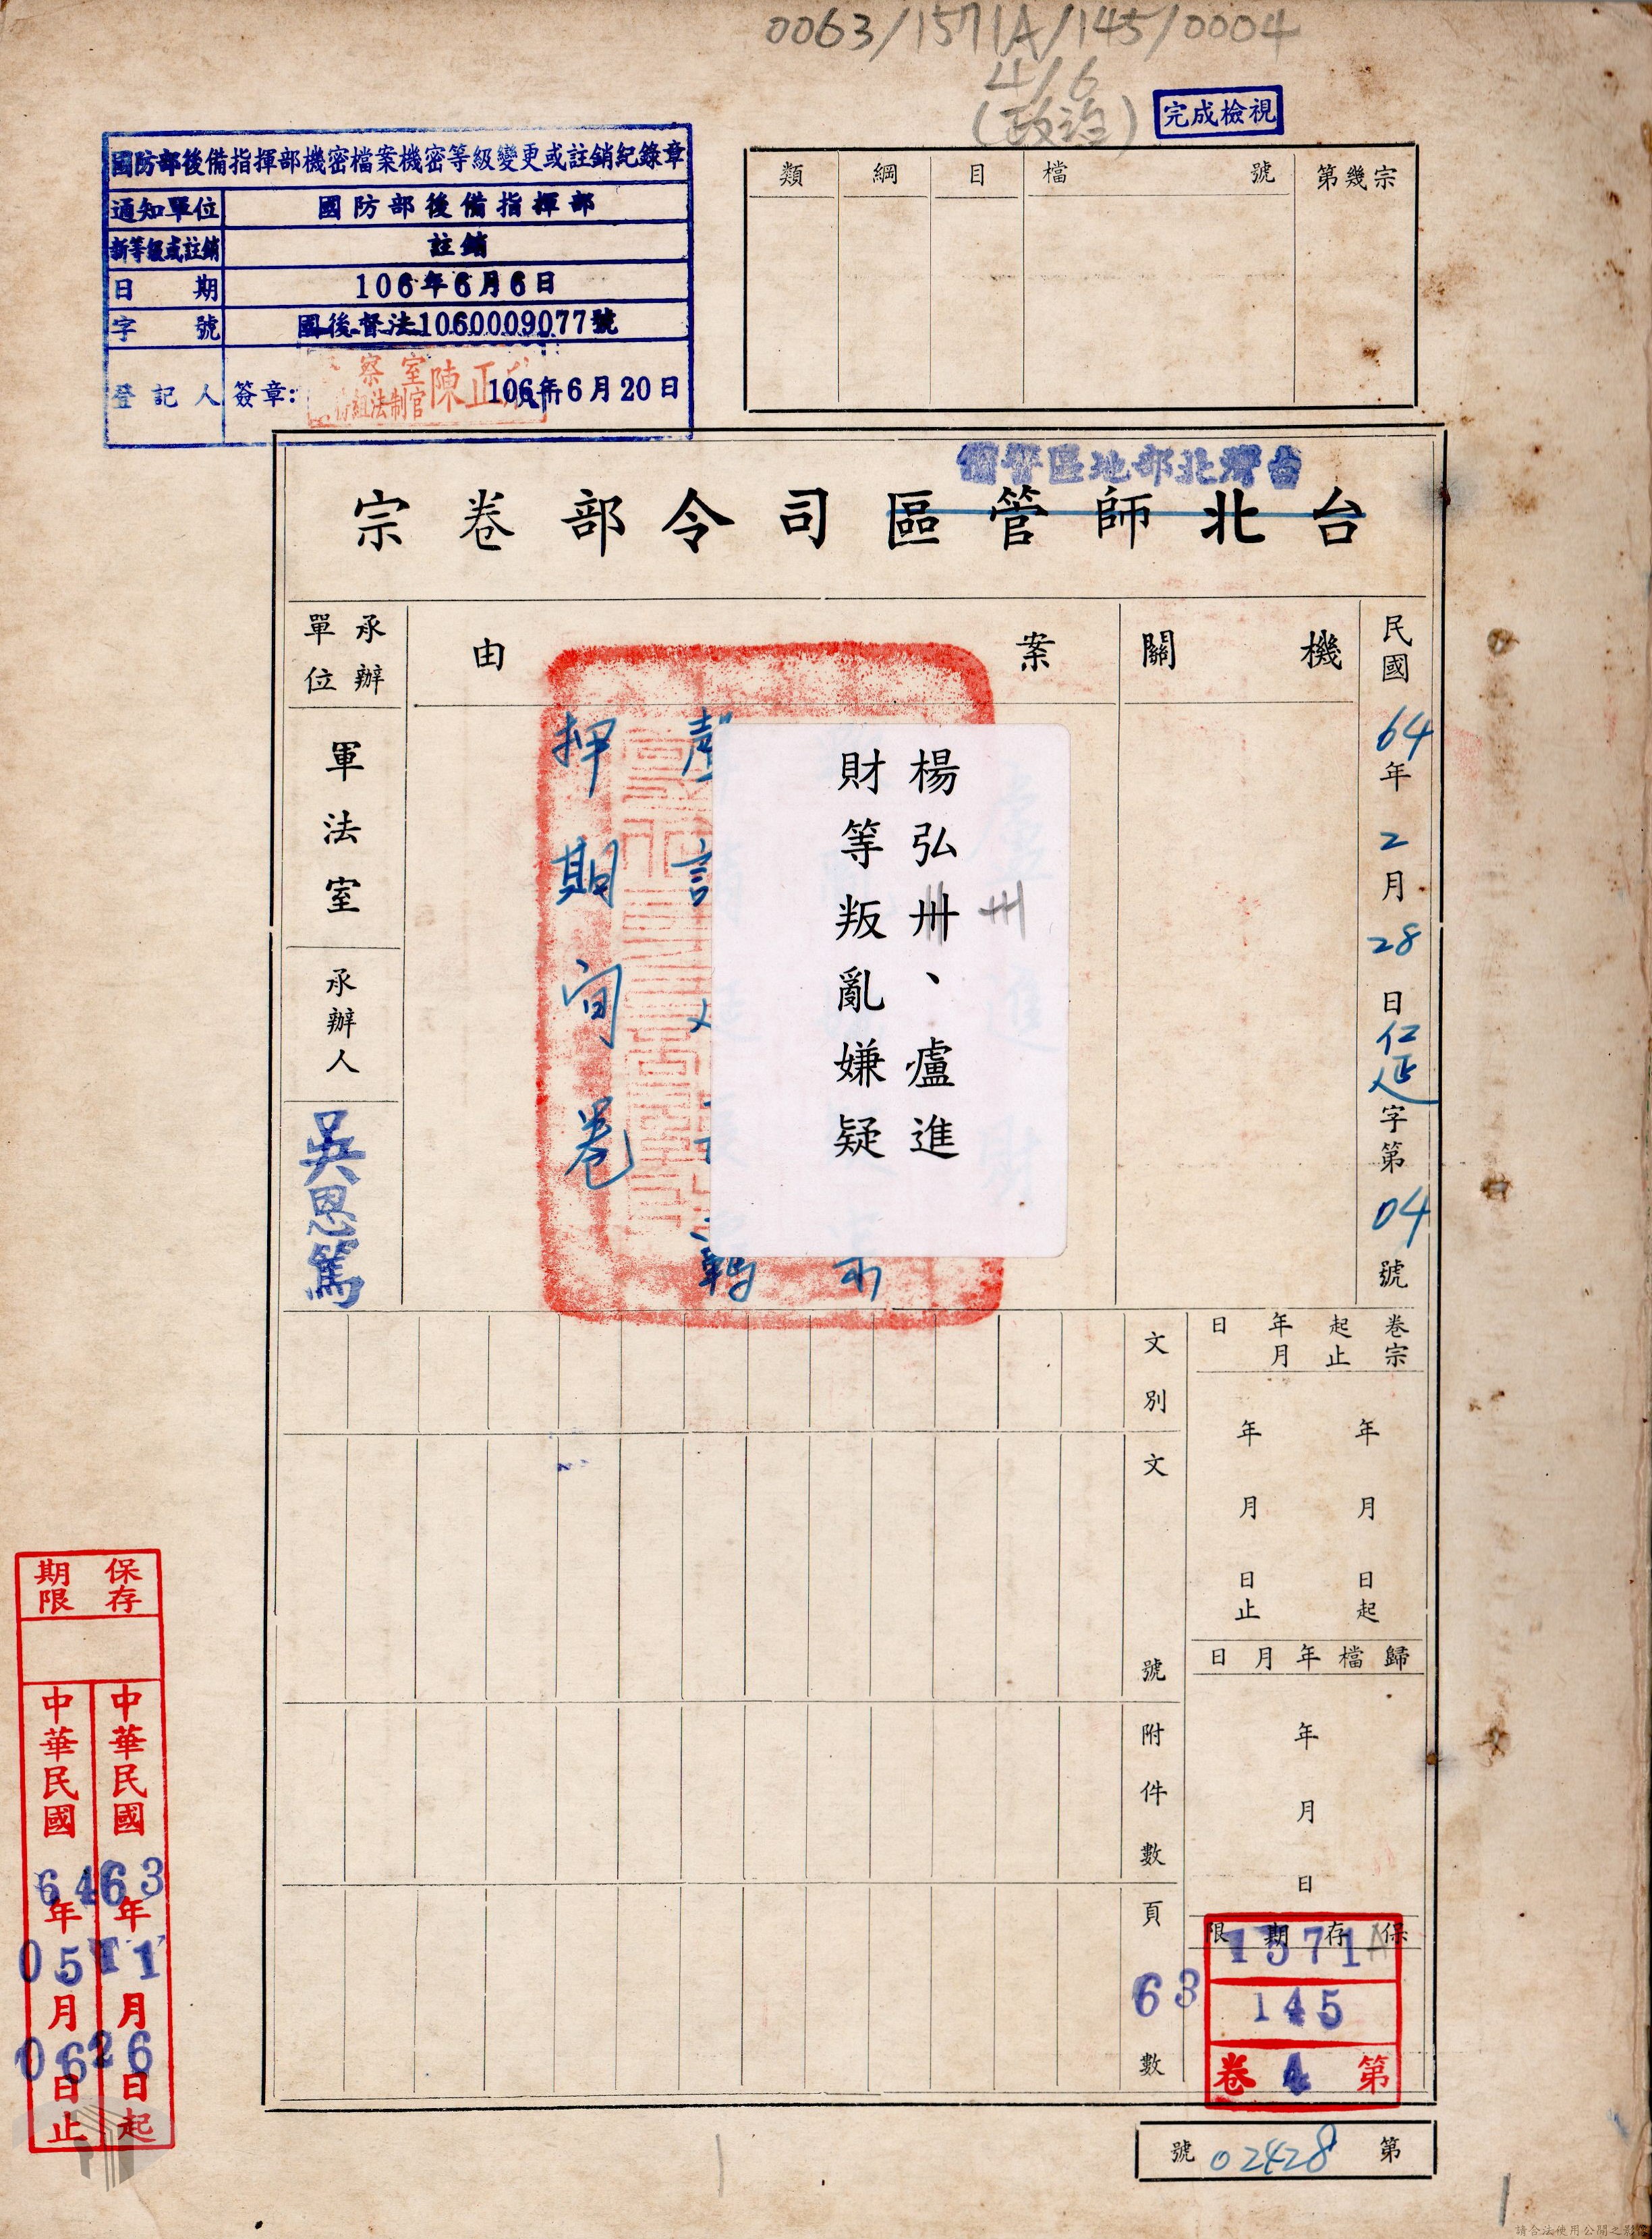 0063/1571A/145/0004
4/6
(政治)
完成檢視
國防部後備指揮部機密檔案機密等級變更或註銷紀錄章
通知單位 國防部後備指揮部
新等級或註銷 註銷
日期 106年6月6日
字號 國後督法1060009077號
登記人 簽章: 106年6月20日
察室
組法制官 陳正
類 綱 目 檔號 第幾宗
台灣北部地區警備
台北師管區司令部卷宗
民國64年2月28日仁延字第04號
機關
案由
楊弘卅、盧進
財等叛亂嫌疑
卅
押期間卷
承辦單位
軍法室
承辦人
吳恩篤
文別
文號
附件數
頁數
63
卷宗起止年月日
年月日起
年月日止
歸檔年月日
年月日
保存期限
1571A
145
第4卷
第02428號
保存期限
中華民國63年11月26日起
中華民國64年05月06日止